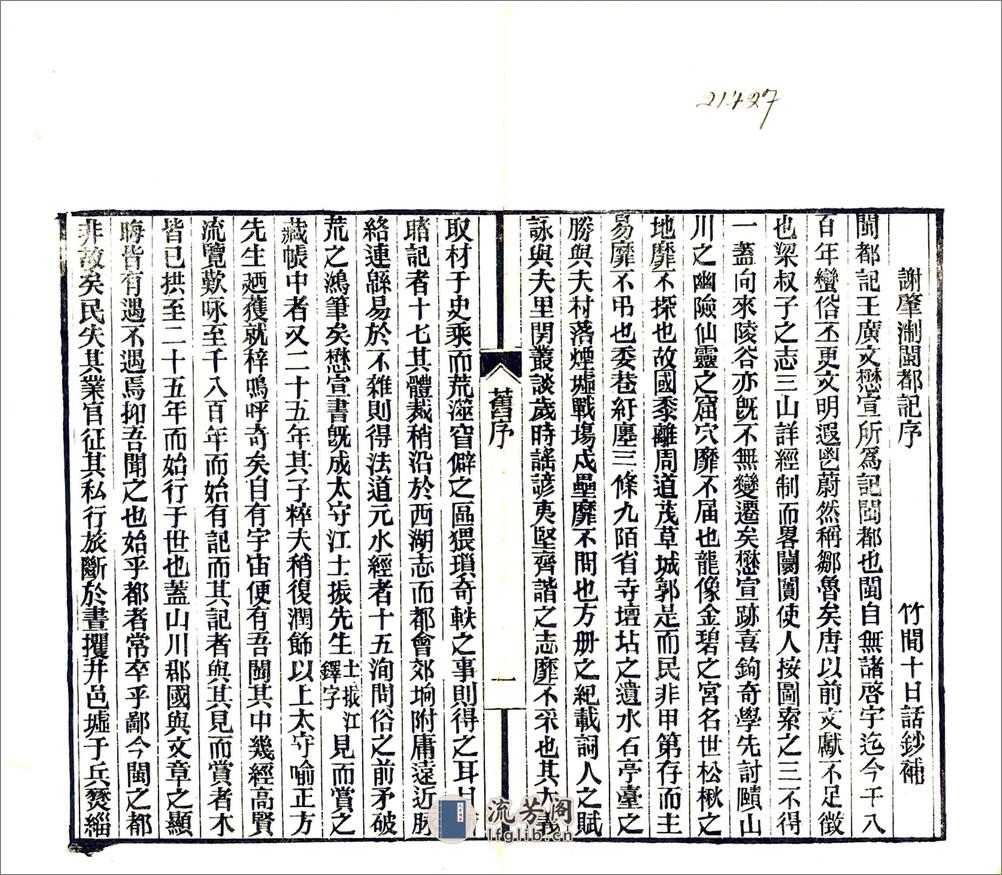 21427
謝肇淛閩都記序 竹間十日話鈔補
閩都記王廣文懋宣所爲記閩都也閩自無諸啓宇迄今千八
百年蠻俗丕更文明遐鬯蔚然稱鄒魯矣唐以前文獻不足徵
也梁叔子之志三山詳經制而畧闤闠使人按圖索之三不得
一蓋向來陵谷亦旣不無變遷矣懋宣跡喜鉤奇學先討賾山
川之幽險仙靈之窟穴靡不届也龍像金碧之宮名世松楸之
地靡不探也故國黍離周道茂草城郭是而民非甲第存而主
易靡不弔也委巷紆廛三條九陌省寺壇坫之遺水石亭臺之
勝與夫村落煙墟戰塲戍壘靡不問也方册之紀載詞人之賦
詠與夫里閈叢談歲時謠諺夷堅齊諧之志靡不采也其大義
舊序
一
取材于史乘而荒溢窅僻之區猥瑣奇軼之事則得之耳目
睹記者十七其體裁稍沿於西湖志而都會郊坰附庸遠近脉
絡連緜易於不雜則得法道元水經者十五洵問俗之前矛破
荒之鴻筆矣懋宣書旣成太守江士振先生士振江鐸字見而賞之
藏帳中者又二十五年其子粹夫稍復潤飾以上太守喻正方
先生廼獲就梓嗚呼奇矣自有宇宙便有吾閩其中幾經高賢
流覽歎咏至千八百年而始有記而其記者與其見而賞者木
皆已拱至二十五年而始行于世也蓋山川郡國與文章之顯
晦皆有遇不遇焉抑吾聞之也始乎都者常卒乎鄙今閩之都
非故矣民失其業官征其私行旅斷於晝攫井邑墟于兵燹緇
流芳阁
lfglib.cn